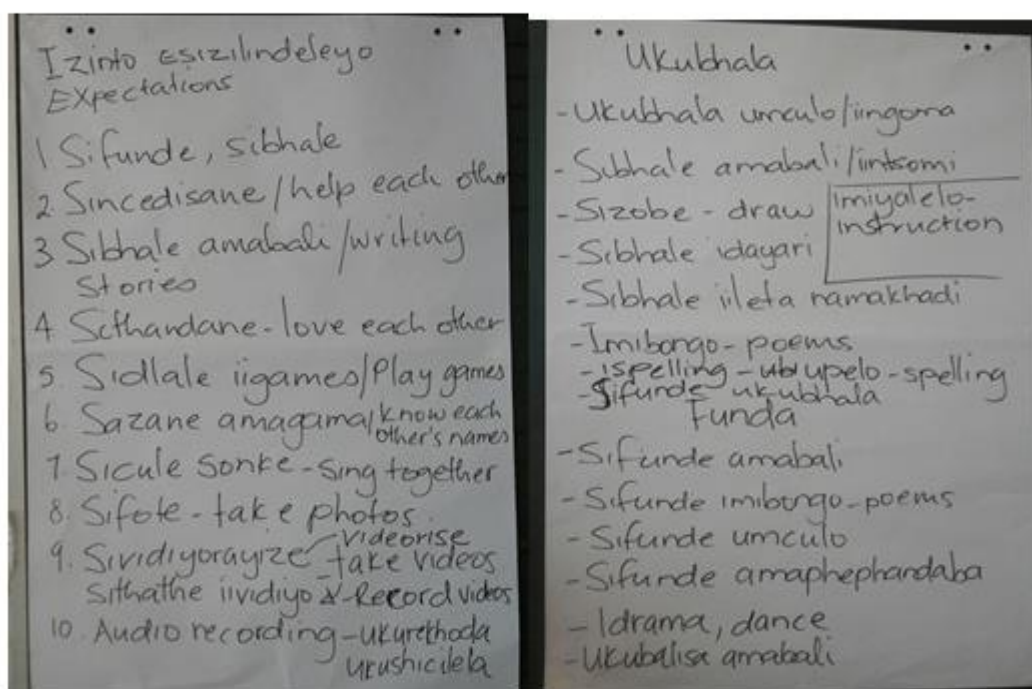 Izinto esizilindeleyo
Expectations
1 Sifunde, sibhale
2. Sincedisane/help each other
3 Sibhale amabali/writing
stories
4 Sithandane - love each other
5. Sidlale iigames/Play games
6. Sazane amagama/know each
other's names
7. Sicule sonke - sing together
8. Sifote - take photos
9. Sividiyorayize - videorise
take videos
Sithathe iividiyo & Record videos
10. Audio recording - ukurekhoda
ukushicilela
Ukubhala
- Ukubhala umculo/iingoma
- Sibhale amabali/iintsomi
- Sizobe - draw
imiyalelo-
instruction
- Sibhale idayari
- Sibhale iileta namakhadi
- Imibongo - poems
- ispelling - ubupelo - spelling
- Sifunde ukubhala
Funda
- Sifunde amabali
- Sifunde imibongo - poems
- Sifunde umculo
- Sifunde amaphephandaba
- Idrama, dance
- Ukubalisa amabali